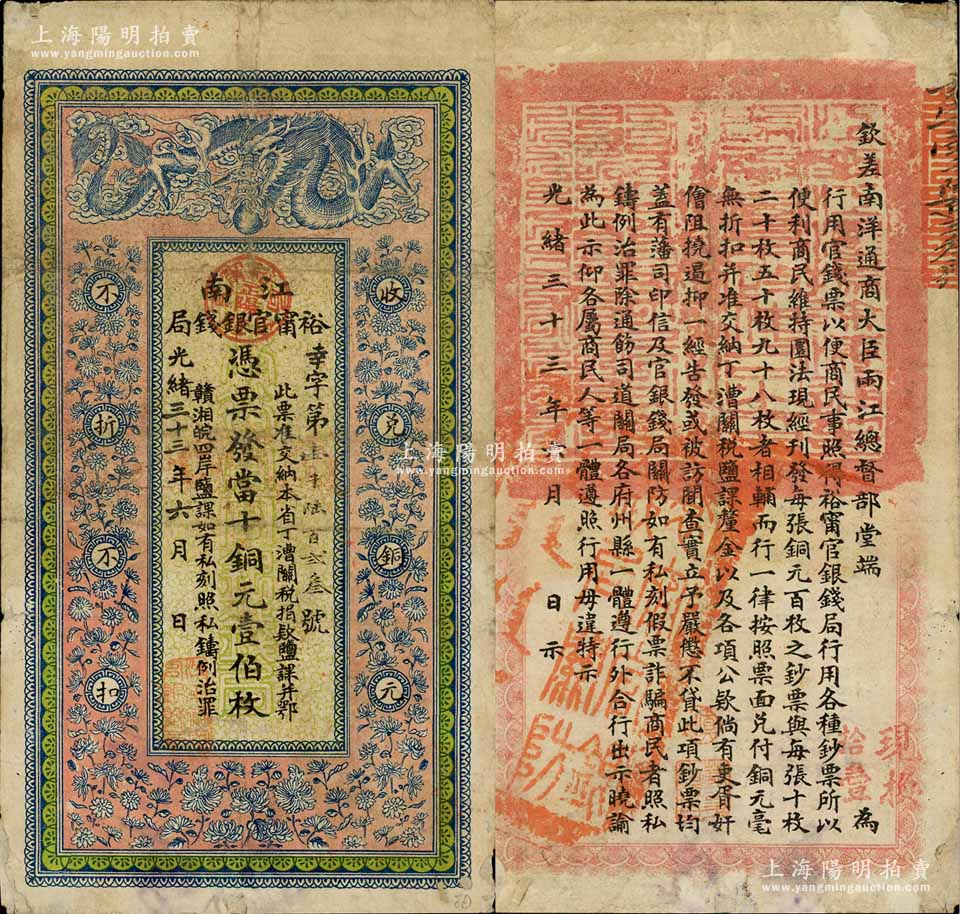 上海陽明拍賣
www.yangmingauction.com
上海陽明拍賣
www.yangmingauction.com
江南
裕甯官銀錢局
幸字第壹千陸百弍叁號
此票准交納本省丁漕關稅捐欵鹽課并鄂
憑票發當十銅元壹伯枚
贛湘皖四岸鹽課如有私刻照私鑄例治罪
光緒三十三年六月 日
收兌銅元
不折不扣
欽差南洋通商大臣兩江總督部堂端 為
行用官錢票以便商民事照得裕甯官銀錢局行用各種鈔票所以
便利商民維持圜法現經刊發每張銅元百枚之鈔票與每張十枚
二十枚五十枚九十八枚者相輔而行一律按照票面兌付銅元毫
無折扣并准交納丁漕關稅鹽課釐金以及各項公欵倘有吏胥奸
儈阻撓遏抑一經告發或被訪聞查實立予嚴懲不貸此項鈔票均
蓋有藩司印信及官銀錢局關防如有私刻假票詐騙商民者照私
鑄例治罪除通飭司道關局各府州縣一體遵行外合行出示曉諭
為此示仰各屬商民人等一體遵照行用毋違特示
光緒三十三年六月 日示
上海陽明拍賣
www.yangmingauction.com
上海陽明拍賣
www.yangmingauction.com